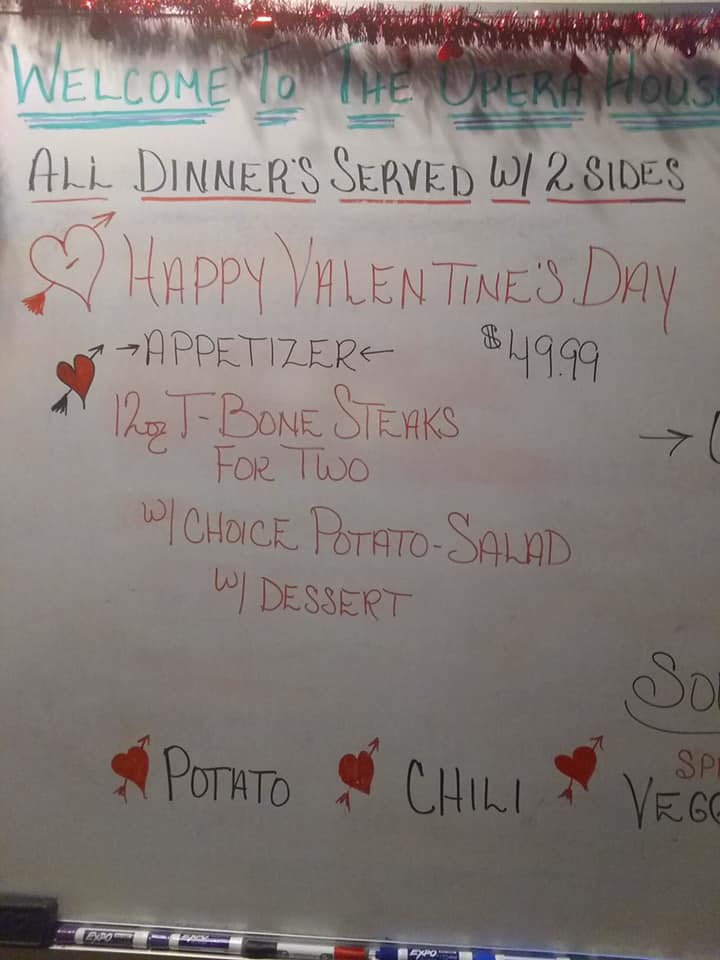 WELCOME TO THE OPERA HOUS
ALL DINNER'S SERVED W/ 2 SIDES
HAPPY VALENTINE'S DAY
→APPETIZER← $49.99
12oz T-BONE STEAKS
FOR TWO
W/ CHOICE POTATO-SALAD
W/ DESSERT
SOU
SPI
POTATO CHILI VEGG
EXPO EXPO EXPO